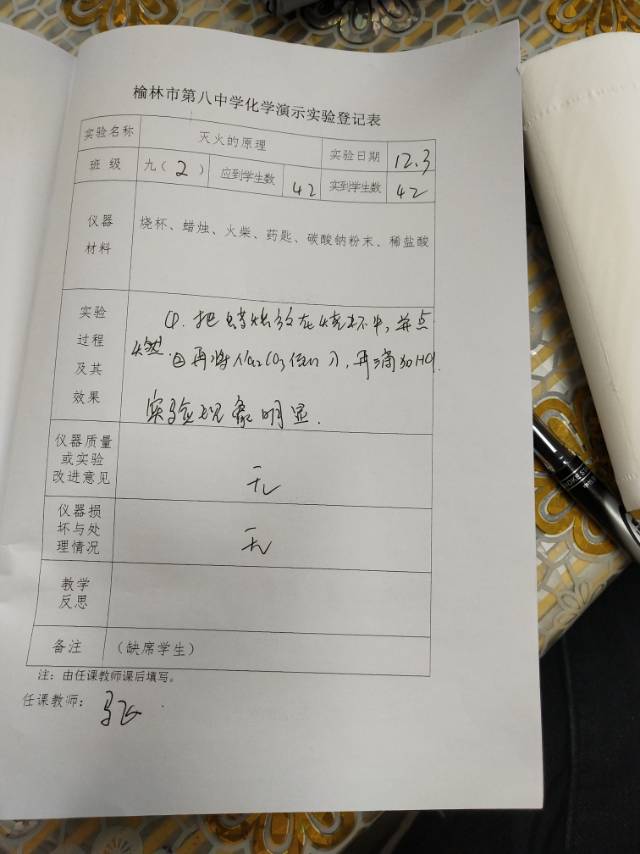 榆林市第八中学化学演示实验登记表
实验名称 灭火的原理 实验日期 12.3
班级 九(2) 应到学生数 42 实到学生数 42
仪器
材料
烧杯、蜡烛、火柴、药匙、碳酸钠粉末、稀盐酸
实验
过程
及其
效果
①.把蜡烛放在烧杯中,并点
燃.②再将Na2CO3 ,再滴加HCl.
实验现象明显.
仪器质量
或实验
改进意见
无
仪器损
坏与处
理情况
无
教学
反思
备注 (缺席学生)
注:由任课教师课后填写。
任课教师:马飞